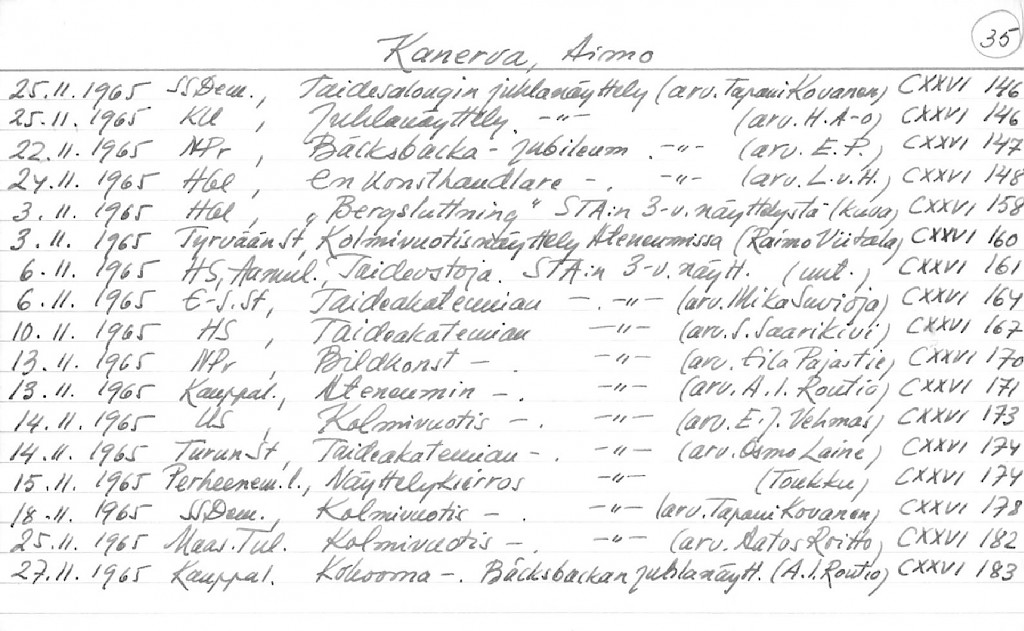 35
Kanerva, Aimo
25.11.1965 SSDem., Taidesalongin juhlanäyttely (arv. Tapani Kovanen) CXXVI 146
25.11.1965 KU , Juhlanäyttely. -"- (arv. H.A-o) CXXVI 146
22.11.1965 NPr , Bäcksbacka-jubileum. -"- (arv. E.P.) CXXVI 147
24.11.1965 Hbl , En konsthandlare -. -"- (arv. L.v.H.) CXXVI 148
3.11.1965 Hbl , "Bergsluttning" STA:n 3-v. näyttelystä (kuva) CXXVI 158
3.11.1965 TyrväänSt, Kolmivuotisnäyttely Ateneumissa (Raimo Viitala) CXXVI 160
6.11.1965 HS, Aamul., Taideostoja. STA:n 3-v. näytt. (uut.) CXXVI 161
6.11.1965 E-S.St, Taideakatemian -. -"- (arv. Mika Suvioja) CXXVI 164
10.11.1965 HS , Taideakatemian -"- (arv. S. Saarikivi) CXXVI 167
13.11.1965 NPr , Bildkonst -. -"- (arv. Eila Pajastie) CXXVI 170
13.11.1965 Kauppal., Ateneumin -. -"- (arv. A.I. Routio) CXXVI 171
14.11.1965 US , Kolmivuotis -. -"- (arv. E.J. Vehmas) CXXVI 173
14.11.1965 TurunSt, Taideakatemian -. -"- (arv. Osmo Laine) CXXVI 174
15.11.1965 Perheenem.l., Näyttelykierros -"- (Toukku) CXXVI 174
18.11.1965 SSDem., Kolmivuotis -. -"- (arv. Tapani Kovanen) CXXVI 178
25.11.1965 Maas.Tul. Kolmivuotis -. -"- (arv. Aatos Roitto) CXXVI 182
27.11.1965 Kauppal. Kokooma -. Bäcksbackan juhlanäytt. (A.I. Routio) CXXVI 183